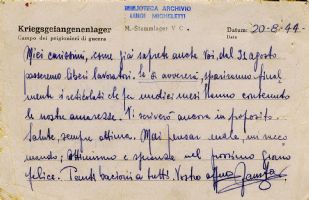 BIBLIOTECA ARCHIVIO
LUIGI MICHELETTI
Kriegsgefangenenlager M.-Stammlager V C. Datum: 20-8-44-
Campo dei prigionieri di guerra
Miei carissimi, come già saprete anche Voi, dal 31 agosto
passeremo liberi lavoratori. Se si avvererà spariranno final
mente i reticolati che per undici mesi hanno contenuto
le nostre amarezze. Vi scriverò ancora in proposito.
Salute, sempre ottima. Mai pensar male, mi racco
mando; Ottimismo e speranza nel prossimo giorno
felice. Tanti bacioni a tutti. Vostro